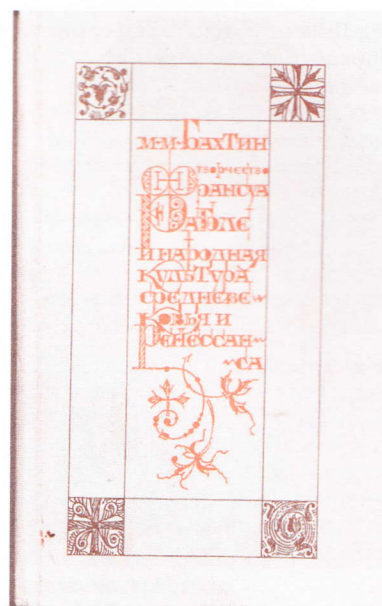 М·М·БАХТИН
ТВОРЧЕСТВО
ФРАНСУА
РАБЛЕ
И НАРОДНАЯ
КУЛЬТУРА
СРЕДНЕВЕ~
КОВЬЯ И
РЕНЕССАН~
~СА